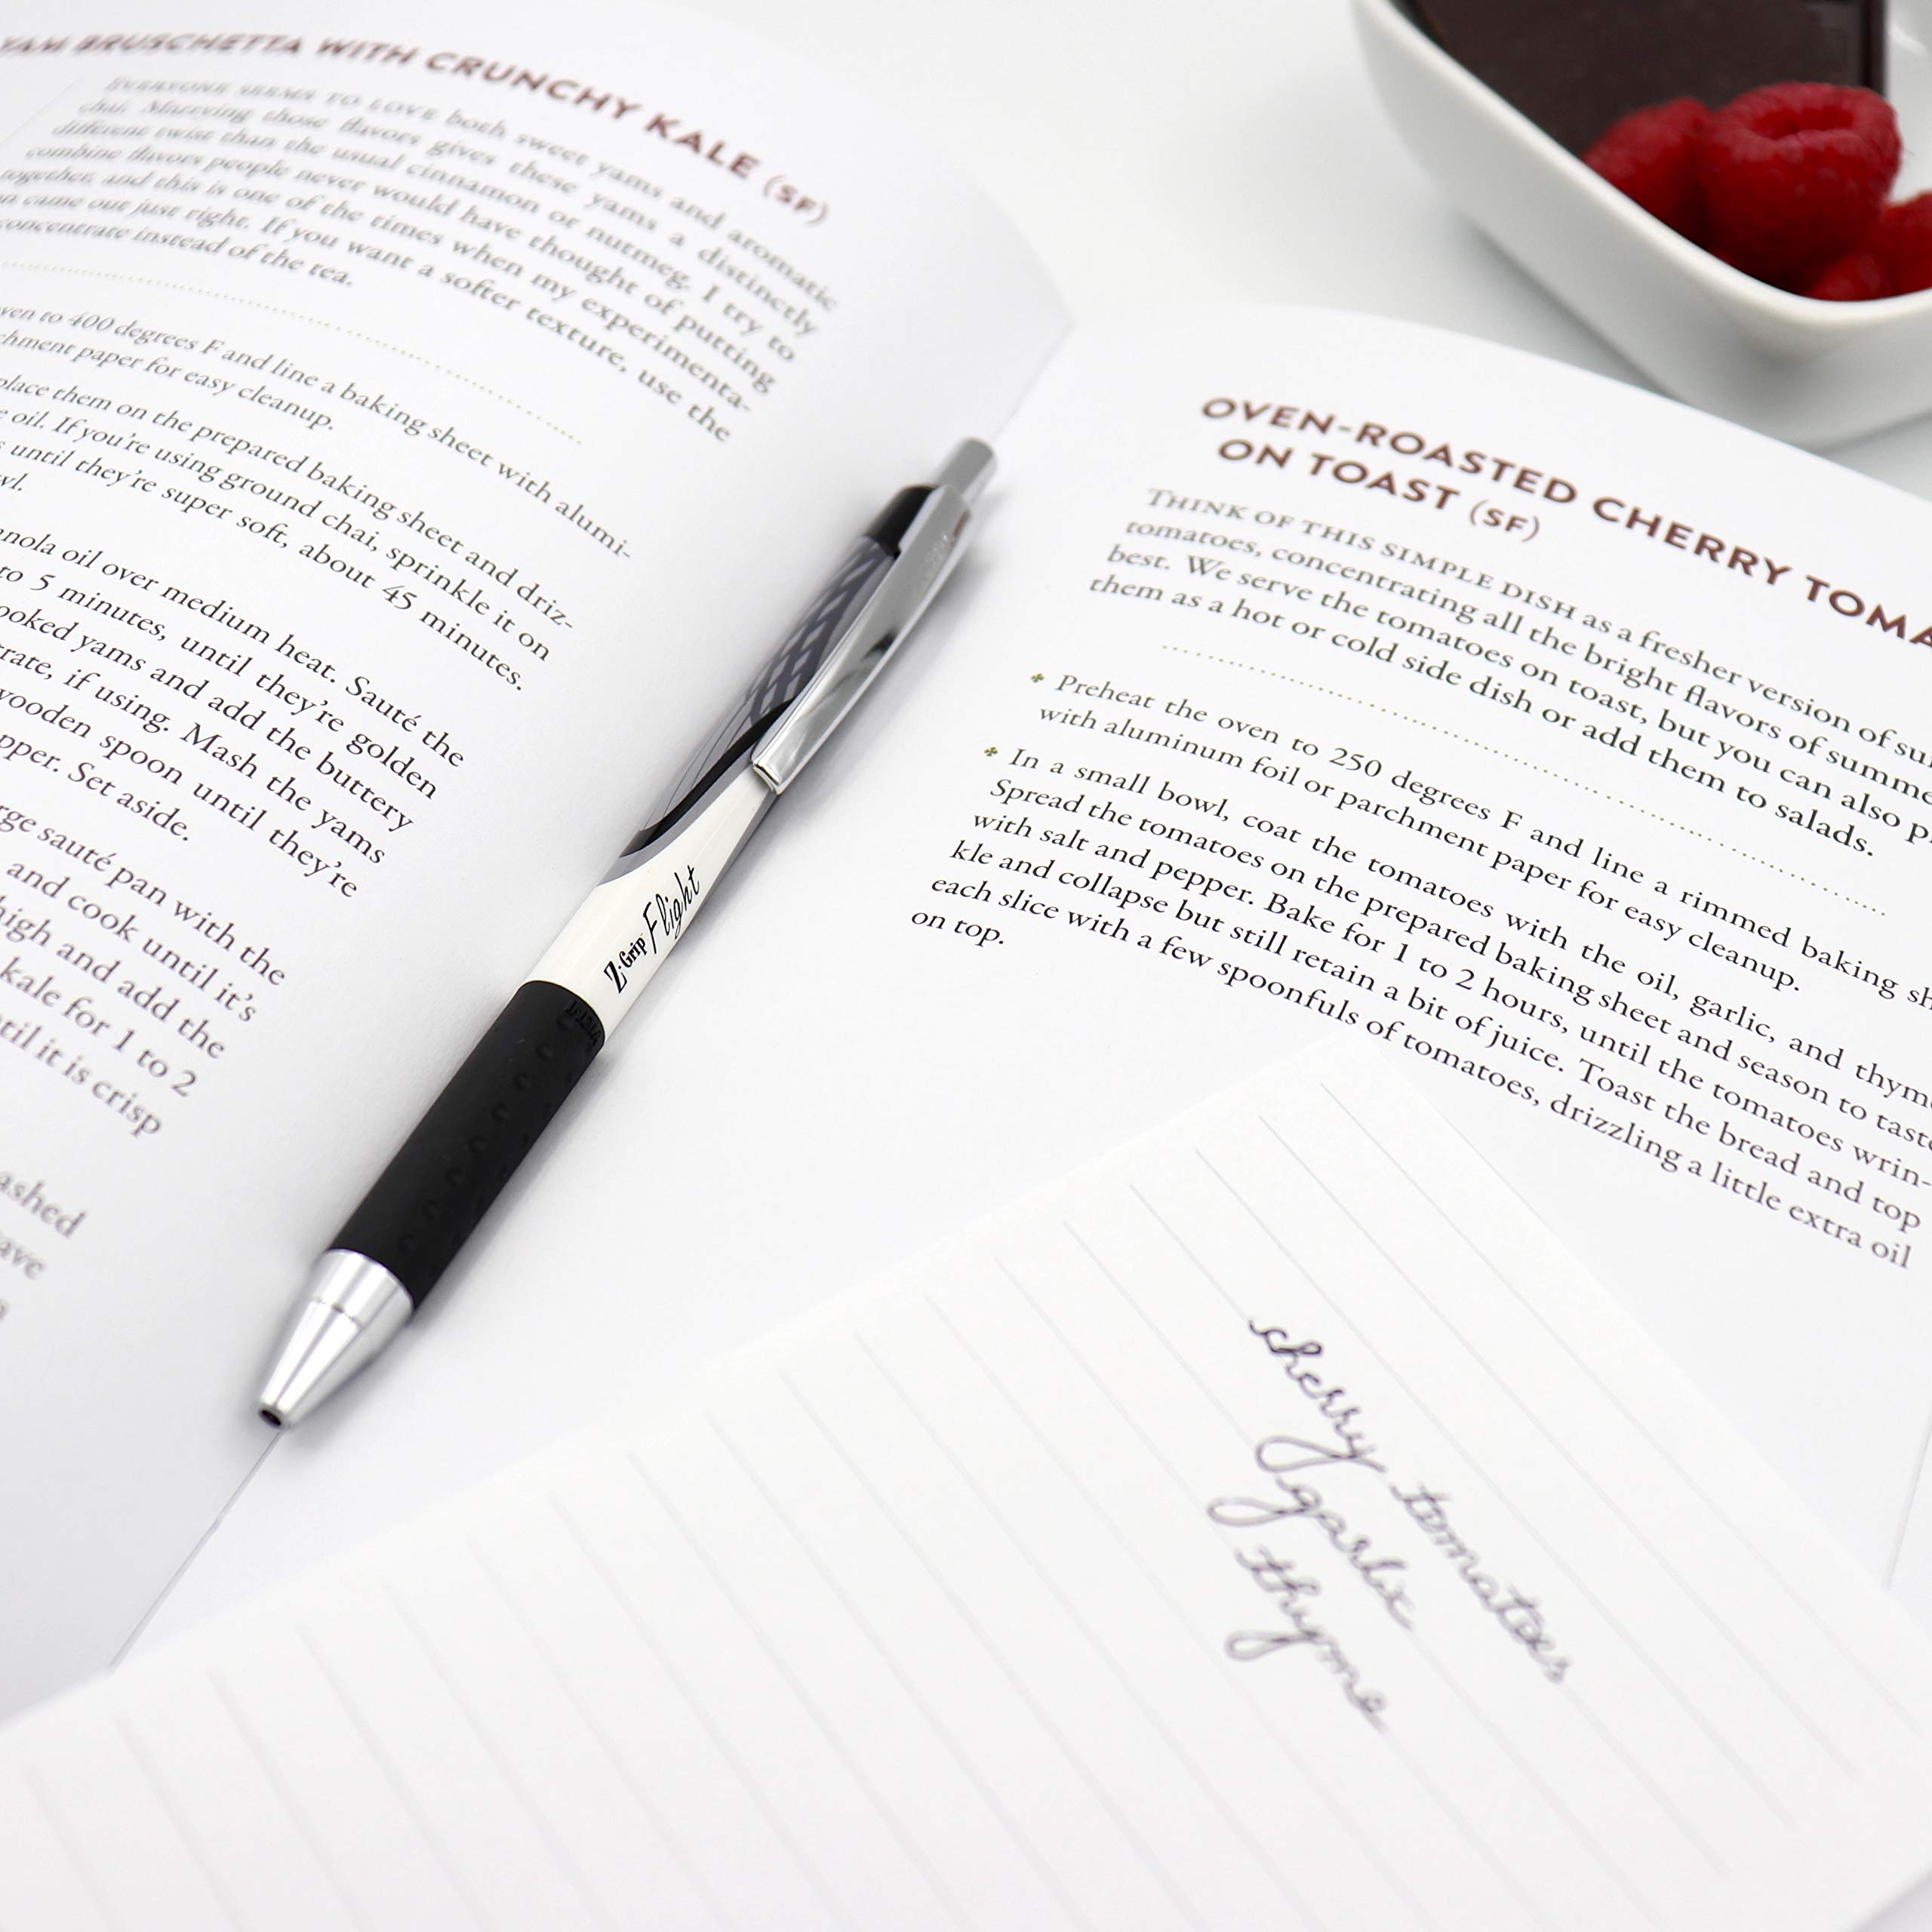 YAM BRUSCHETTA WITH CRUNCHY KALE (SF)
EVERYONE SEEMS TO LOVE both sweet yams and aromatic
chai. Marrying those flavors gives these yams a distinctly
different twist than the usual cinnamon or nutmeg. I try to
combine flavors people never would have thought of putting
together, and this is one of the times when my experimenta-
came out just right. If you want a softer texture, use the
concentrate instead of the tea.
to 400 degrees F and line a baking sheet with alumi-
paper for easy cleanup.
place them on the prepared baking sheet and driz-
oil. If you're using ground chai, sprinkle it on
until they're super soft, about 45 minutes.
oil over medium heat. Sauté the
to 5 minutes, until they're golden
yams and add the buttery
if using. Mash the yams
spoon until they're
Set aside.
sauté pan with the
and cook until it's
and add the
kale for 1 to 2
it is crisp
Z-Grip Flight
OVEN-ROASTED CHERRY
ON TOAST (SF)
THINK OF THIS SIMPLE DISH as a fresher version of
tomatoes, concentrating all the bright flavors of
best. We serve the tomatoes on toast, but you can also
them as a hot or cold side dish or add them to salads.
Preheat the oven to 250 degrees F and line a rimmed baking
with aluminum foil or parchment paper for easy cleanup.
In a small bowl, coat the tomatoes with the oil, garlic, and
Spread the tomatoes on the prepared baking sheet and season to
with salt and pepper. Bake for 1 to 2 hours, until the tomatoes wrin-
kle and collapse but still retain a bit of juice. Toast the bread and top
each slice with a few spoonfuls of tomatoes, drizzling a little extra oil
on top.
cherry tomatoes
garlic
thyme